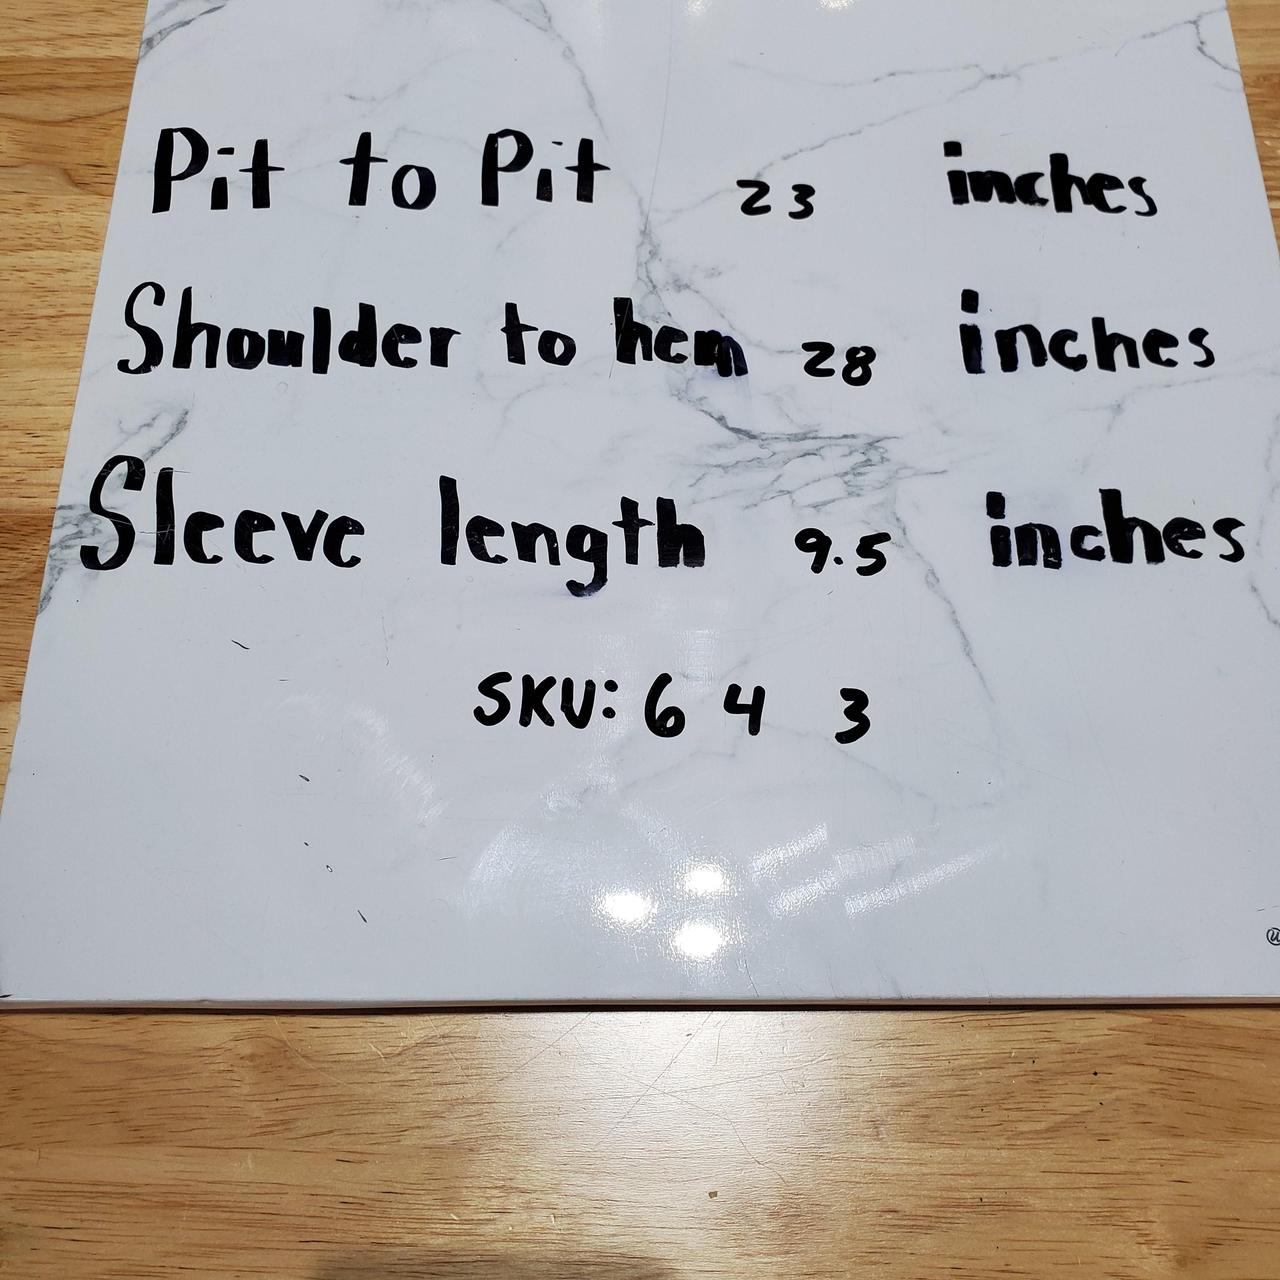 Pit to Pit 23 inches
Shoulder to hem 28 inches
Sleeve length 9.5 inches
SKU: 6 4 3